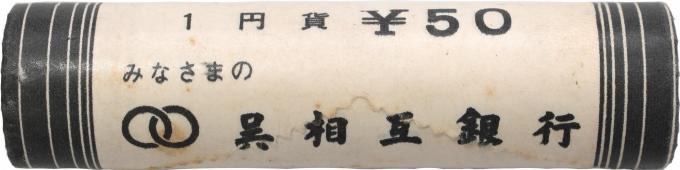 1円貨 ¥50
みなさまの
呉相互銀行